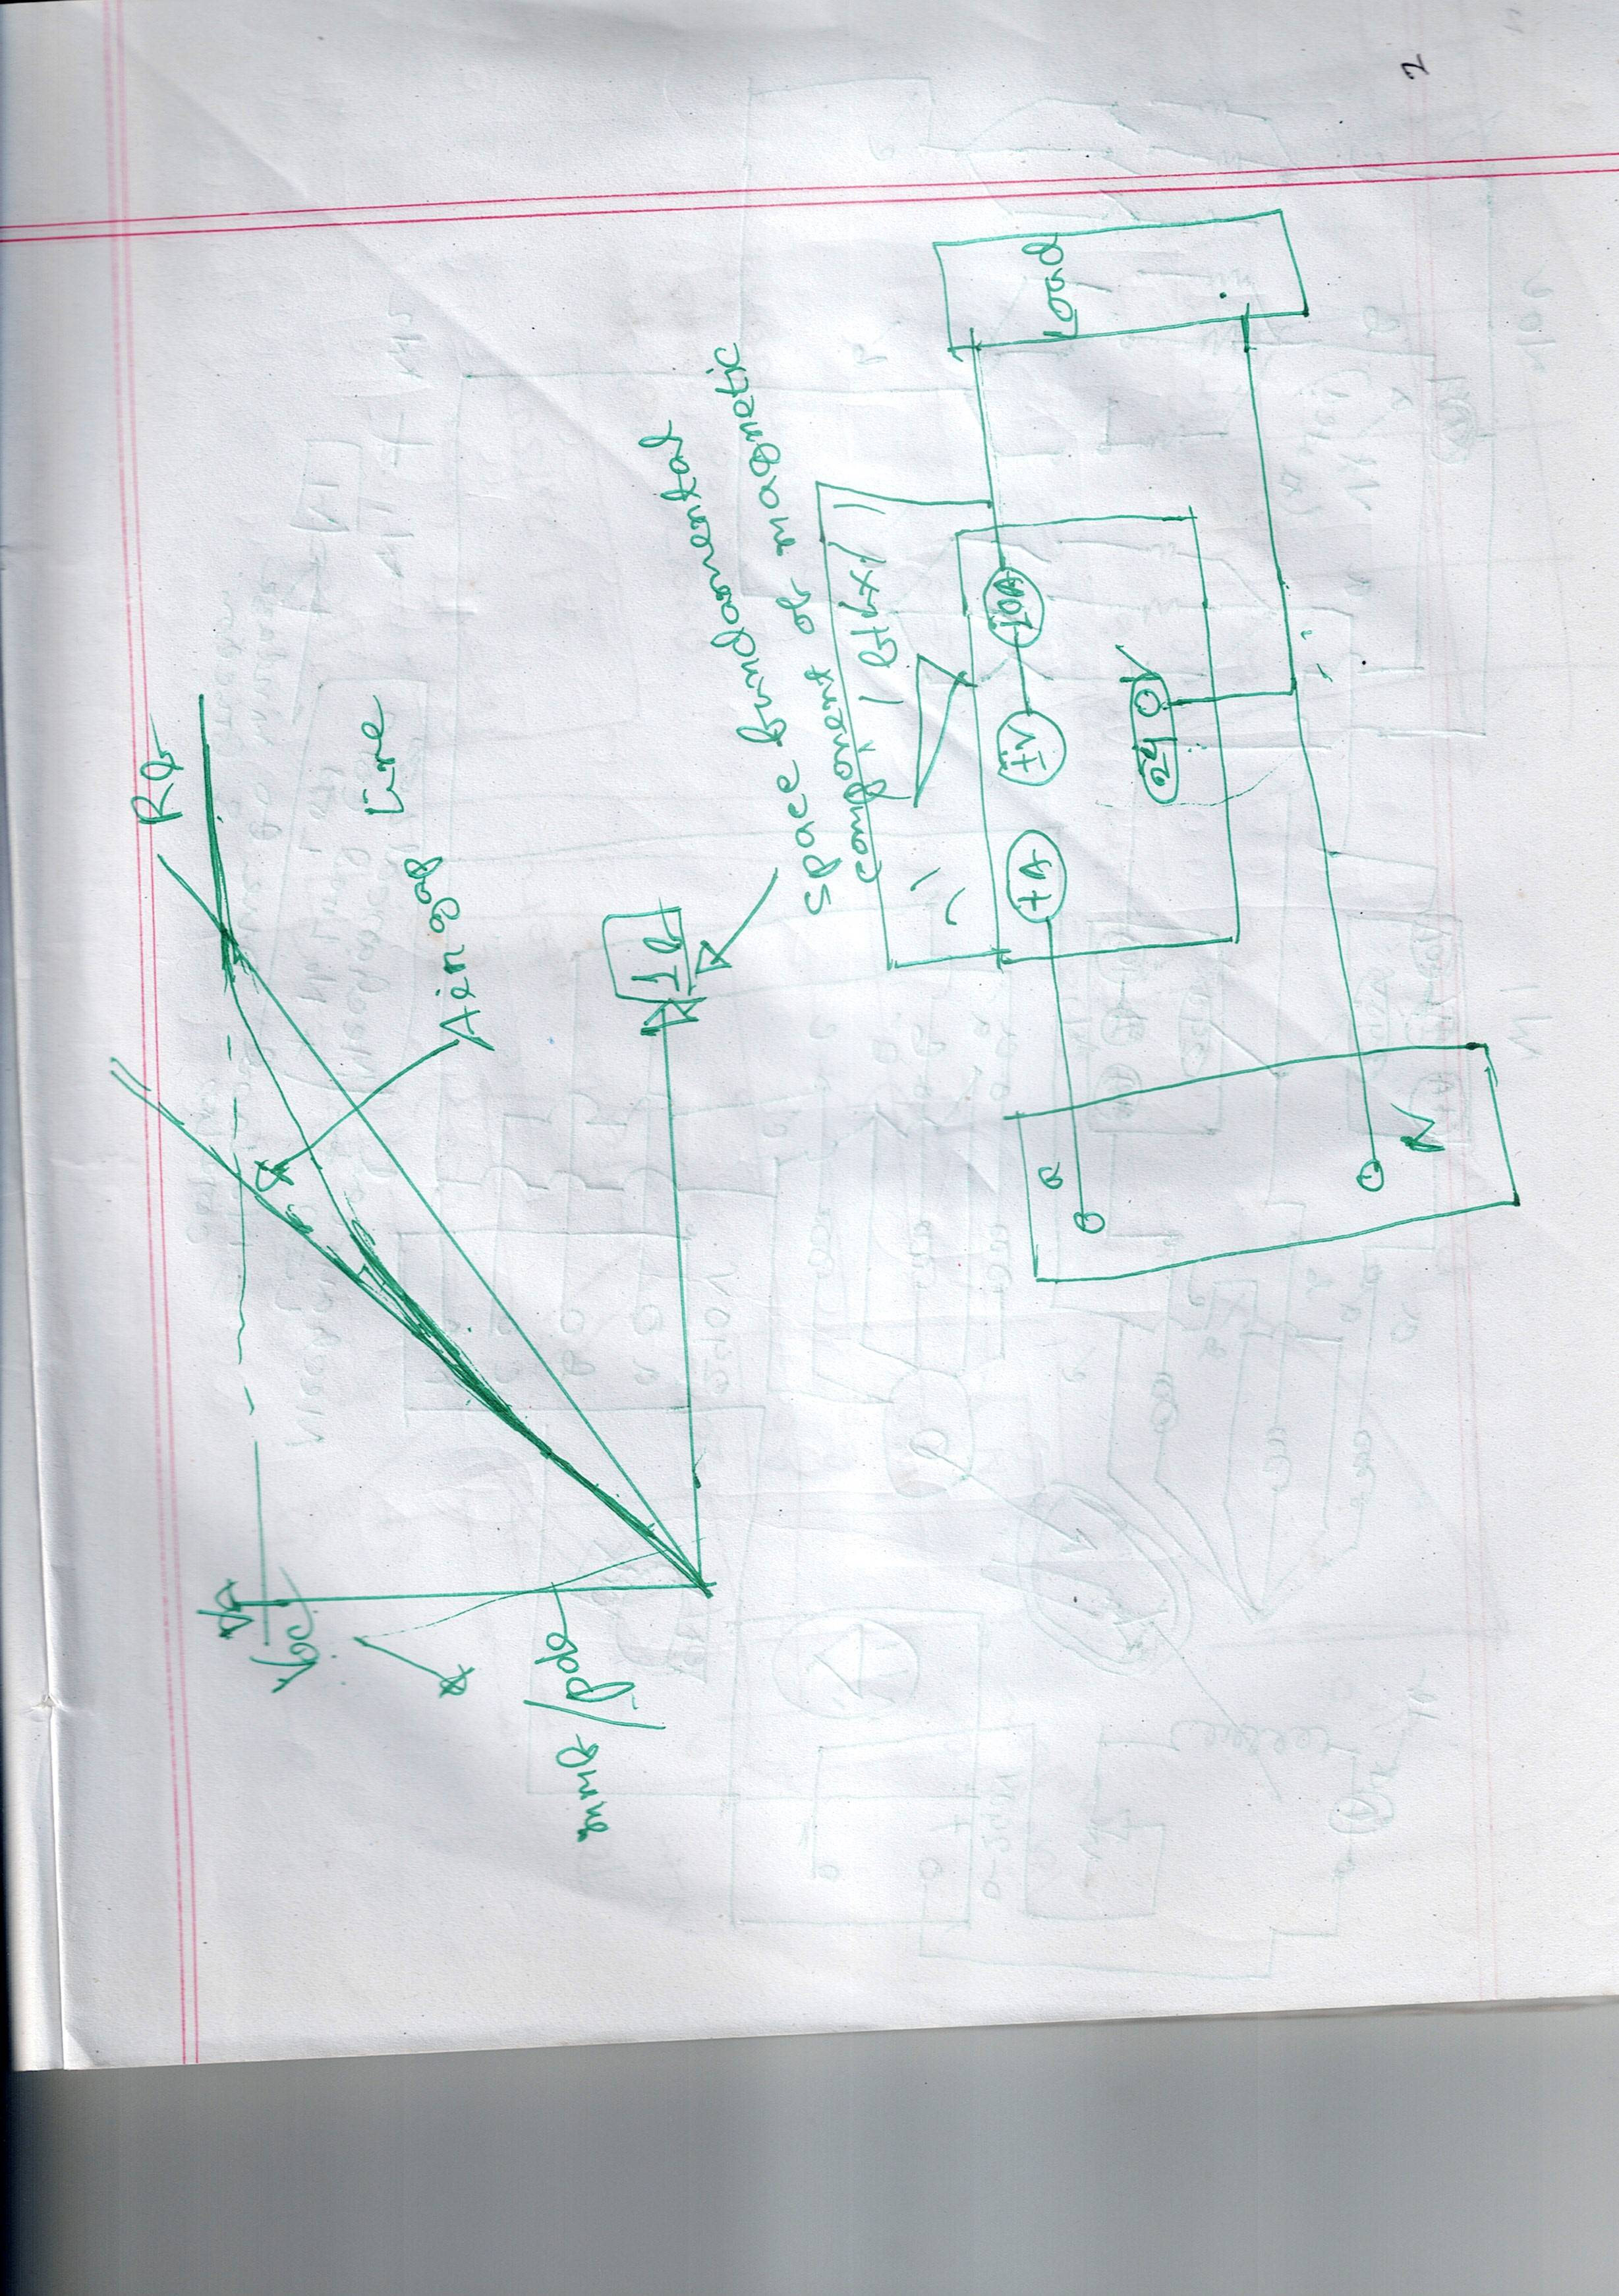 2
Rf
Air gap Line
Voc
mmf/pole
If
Space fundamental
component of magnetic
Load
10A
±V
+A
240
R
N